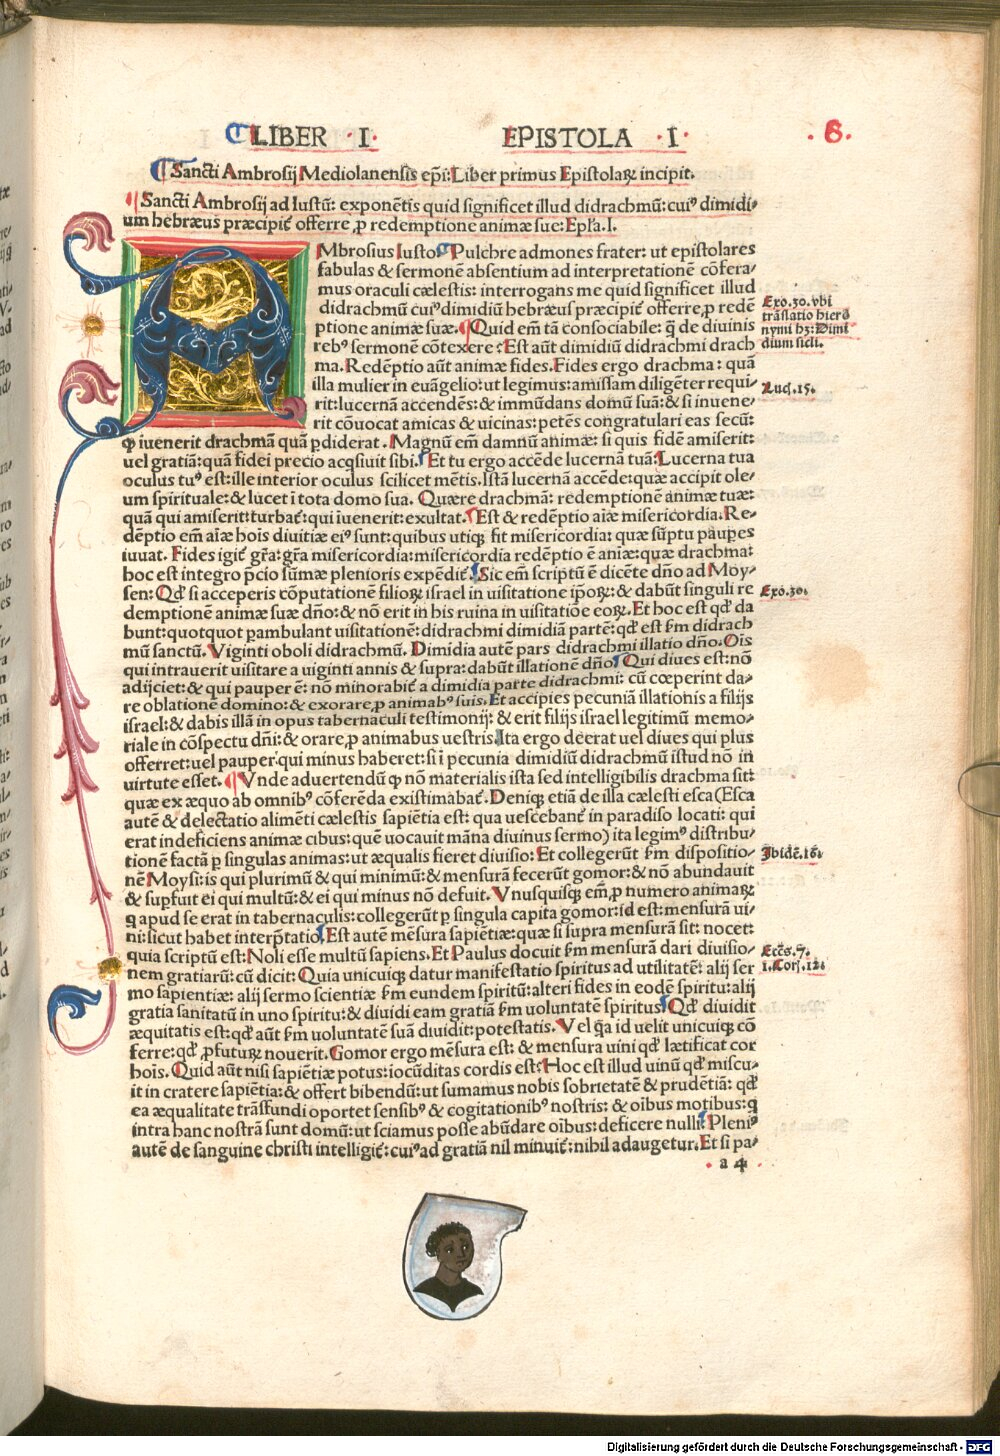 LIBER · I · EPISTOLA · I · · 6 ·
Sancti Ambrosij Mediolanensis ep̄i: Liber primus Epistolaꝝ incipit.
Sancti Ambrosij ad Iustū: exponētis quid significet illud didrachmū: cuiꝰ dimidi⸗
um hebræus præcipit̄ offerre ꝓ redemptione animæ sue: Epl̄a. I.
AMbrosius Iusto. Pulchre admones frater: ut epistolares
fabulas & sermonē absentium ad interpretationē cōfera⸗
mus oraculi cælestis: interrogans me quid significet illud
didrachmū cuiꝰ dimidiū hebræus præcipit̄ offerre, ꝓ redē
ptione animæ suæ. Quid em̄ tā consociabile: q̄ de diuinis
rebꝰ sermonē cōtexere: Est aūt dimidiū didrachmi drach
ma. Redēptio aūt animæ fides. Fides ergo drachma: quā
illa mulier in euāgelio: ut legimus: amissam diligēter requi⸗
rit: lucernā accendēs: & immūdans domū suā: & si inuene⸗
rit cōuocat amicas & uicinas: petēs congratulari eas secū:
ꝙ iuenerit drachmā quā ꝑdiderat. Magnū em̄ damnū animæ: si quis fidē amiserit:
uel gratiā: quā fidei precio acq̄siuit sibi. Et tu ergo accēde lucernā tuā: Lucerna tua
oculus tuꝰ est: ille interior oculus scilicet mētis. Istā lucernā accēde: quæ accipit ole⸗
um spirituale: & lucet ī tota domo sua. Quære drachmā: redemptionē animæ tuæ:
quā qui amiserit: turbat̄: qui īuenerit: exultat. Est & redēptio aīæ misericordia. Re⸗
dēptio em̄ aīæ hoīs diuitiæ eiꝰ sunt: quibus utiqꝫ fit misericordia: quæ sūptu paupes
iuuat. Fides igit̄ gr̄a: gr̄a misericordia: misericordia redēptio ē anīæ: quæ drachma:
hoc est integro p̄cio sūmæ plenioris expēdit̄. Sic em̄ scriptū ē dicēte dn̄o ad Moy⸗
sen: Qd̄ si acceperis cōputationē filioꝝ israel in uisitatione ip̄oꝝ: & dabūt singuli re
demptionē animæ suæ dn̄o: & nō erit in his ruina in uisitatiōe eoꝝ. Et hoc est qd̄ da
bunt: quotquot ꝑambulant uisitationē: didrachmi dimidiā partē: qd̄ est ẜm didrach
mū sanctū. Viginti oboli didrachmū. Dimidia autē pars didrachmi illatio dn̄o. Oīs
qui intrauerit uisitare a uiginti annis & supra: dabūt illationē dn̄o. Qui diues est: nō
adijciet: & qui pauper ē: nō minorabit̄ a dimidia parte didrachmi: cū cœperint da⸗
re oblationē domino: & exorare, ꝓ animabꝰ suis. Et accipies pecuniā illationis a filijs
israel: & dabis illā in opus tabernaculi testimonij: & erit filijs israel legitimū memo⸗
riale in cōspectu dn̄i: & orare, ꝓ animabus uestris. Ita ergo deerat uel diues qui plus
offerret: uel pauper qui minus haberet: si ī pecunia dimidiū didrachmū istud nō in
uirtute esset. Vnde aduertendū ꝙ nō materialis ista sed intelligibilis drachma sit:
quæ ex æquo ab omnibꝰ cōferēda existimabat̄. Deniqꝫ etiā de illa cælesti esca (Esca
autē & delectatio alimēti cælestis sapiētia est: qua uescebant̄ in paradiso locati: qui
erat indeficiens animæ cibus: quē uocauit māna diuinus sermo) ita legimꝰ distribu⸗
tionē factā ꝑ singulas animas: ut æqualis fieret diuisio: Et collegerūt ẜm dispositio⸗
nē Moysi: is qui plurimū & qui minimū: & mensurā fecerūt gomor: & nō abundauit
& supfuit ei qui multū: & ei qui minus nō defuit. Vnusquisqꝫ em̄, ꝓ numero animaꝝ
q̄ apud se erat in tabernaculis: collegerūt ꝑ singula capita gomor: id est: mensurā ui⸗
ni: sicut habet interp̄tatio. Est autē mēsura sapiētiæ: quæ si supra mensurā sit: nocet:
quia scriptū est: Noli esse multū sapiens. Et Paulus docuit ẜm mensurā dari diuisio⸗
nem gratiarū: cū dicit: Quia unicuiqꝫ datur manifestatio spiritus ad utilitatē: alij ser
mo sapientiæ: alij sermo scientiæ ẜm eundem spiritū: alteri fides in eodē spiritu: alij
gratia sanitatū in uno spiritu: & diuidi eam gratiā ẜm voluntatē spiritus. Qd̄ diuidit
æquitatis est: qd̄ aūt ẜm voluntatē suā diuidit: potestatis. Vel q̄a id uelit unicuiqꝫ cō
ferre: qd̄ ꝓfuturꝝ nouerit. Gomor ergo mēsura est: & mensura uini qd̄ lætificat cor
hoīs. Quid aūt nisi sapiētiæ potus: iocūditas cordis est: Hoc est illud uinū qd̄ miscu⸗
it in cratere sapiētia: & offert bibendū: ut sumamus nobis sobrietatē & prudētiā: qd̄
ea æqualitate trāsfundi oportet sensibꝰ & cogitationibꝰ nostris: & oībus motibus: q̄
intra hanc nostrā sunt domū: ut sciamus posse abūdare oībus: deficere nulli. Pleniꝰ
autē de sanguine christi intelligit̄: cuiꝰ ad gratiā nil minuit̄: nihil adaugetur. Et si pa⸗
a 4
Exo. 30. vbi
trāslatio hiero
nymi hꝫ: Dimi
dium sicli.
Luc̄. 15.
Exo. 30.
Ibidē. 16.
Ecc̄s. 7.
1. Cor̄. 12.
Digitalisierung gefördert durch die Deutsche Forschungsgemeinschaft - DFG